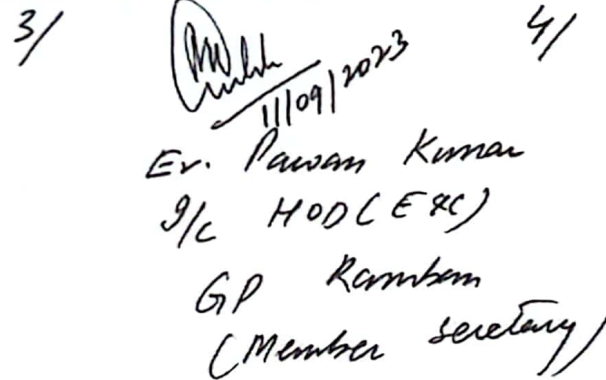 3/ 4/
11/09/2023
Er. Pawan Kumar
I/c HOD (E&C)
GP Ramban
(Member Secretary)